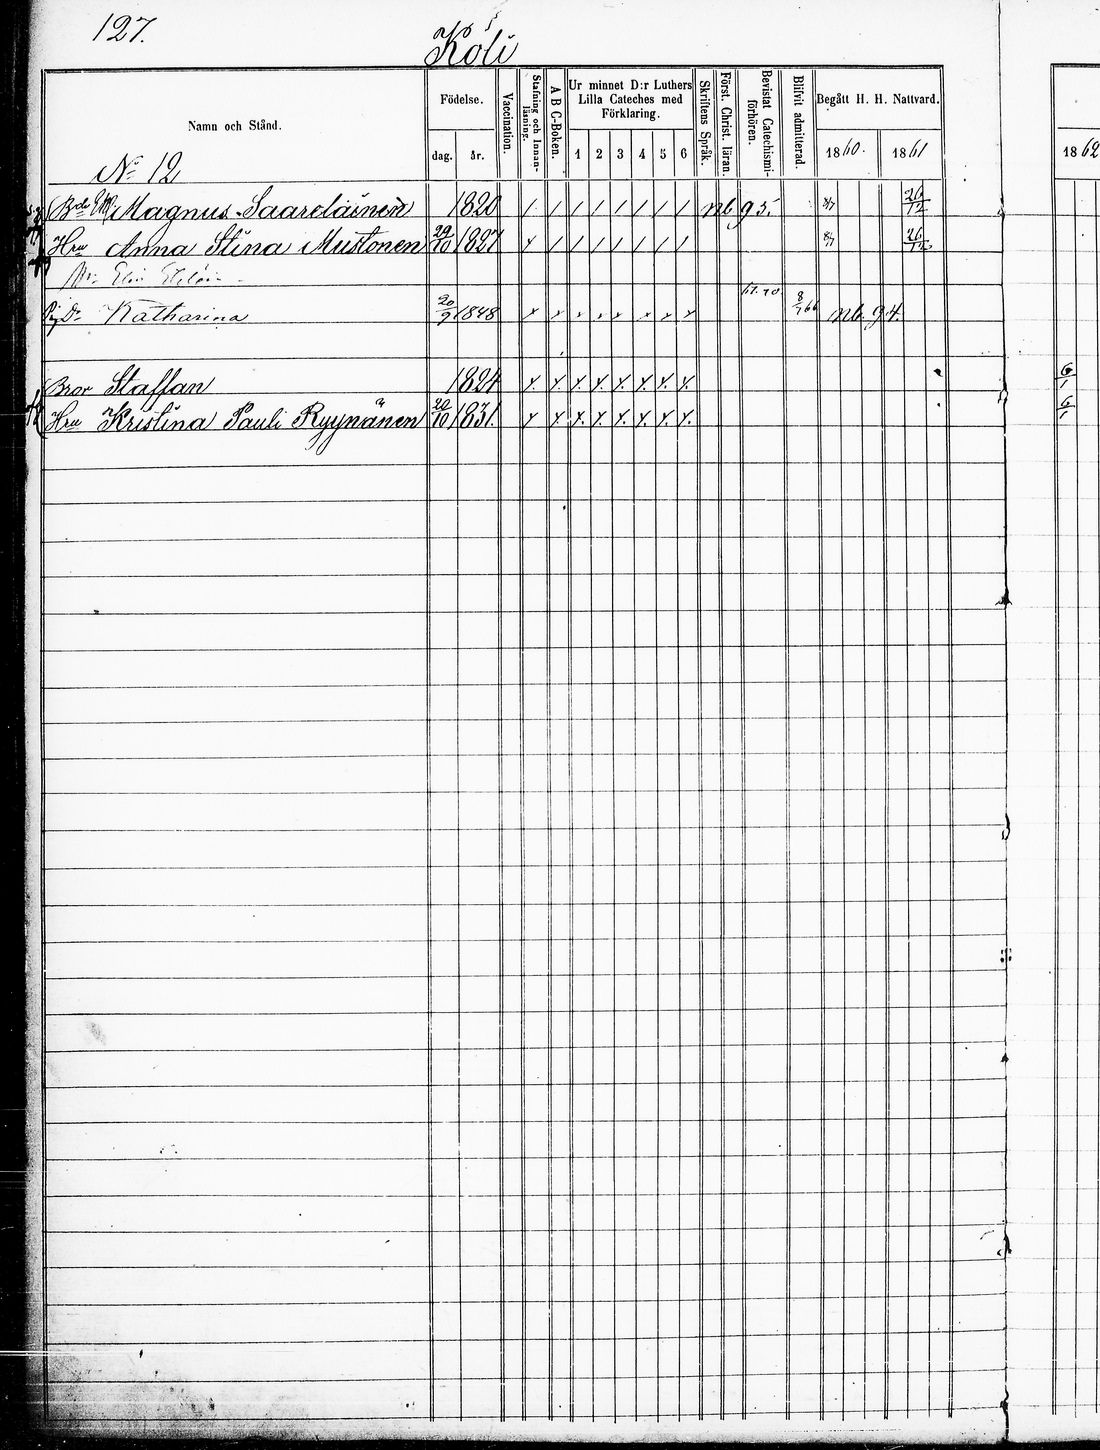 127.
Koli
Namn och Stånd.
Födelse.
dag. år.
Vaccination.
Stafning och Innan-läsning.
A B C-Boken.
Ur minnet D:r Luthers Lilla Cateches med Förklaring.
1 2 3 4 5 6
Skriftens Språk.
Först. Christ. läran.
Bevistat Catechismi-förhören.
Blifvit admitterad.
Begått H. H. Nattvard.
1860. 1861
1862
No 12
Magnus Saarelainen 1820 / / / / / / / / nb 95. 26/12
Hru Anna Stina Mustonen 29/10 1827 x / / / / / / / 26/12
Dr Katharina 20/9 1848 x x x x x x x x 67. 70 8/7 66 nb. 94.
Bror Staffan 1824 x. x. x. x. x. x. x. x. 6/1
Hru Kristina Pauli Ryynänen 20/10 1831. x x x. x. x. x. x. x. 6/1